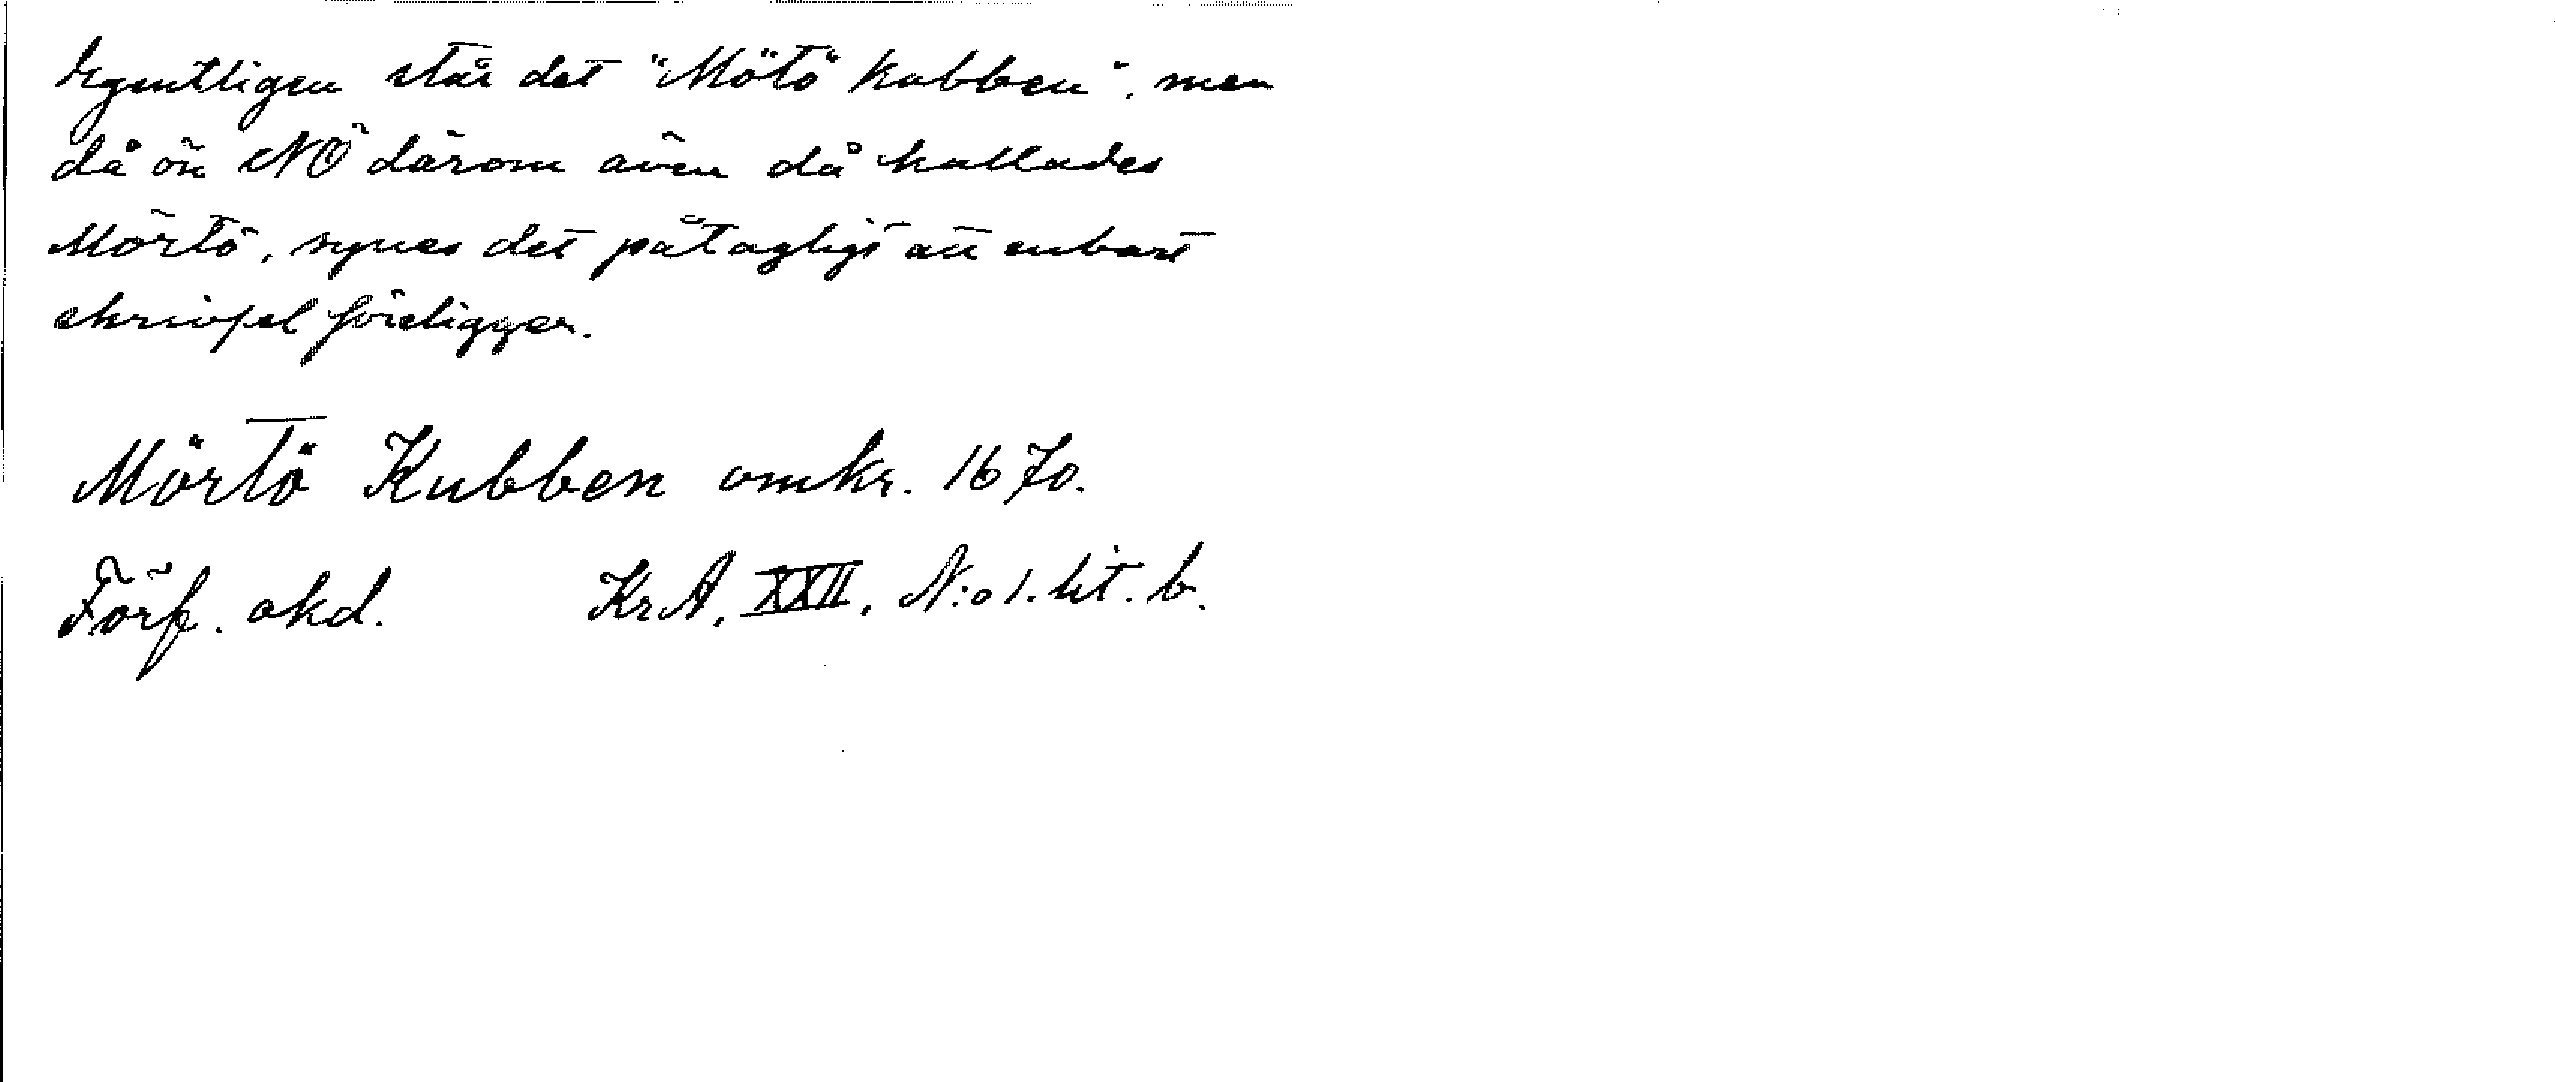 Egentligen står det "Mötö kubben", men
då ön NÖ därom även då kallades
Mörtö, synes det påtagligt att enbart
skrivfel föreligger.
Mörtö Kubben omkr. 1670.
Förf. okd. KrA, XXII, N:o 1. lit. b.